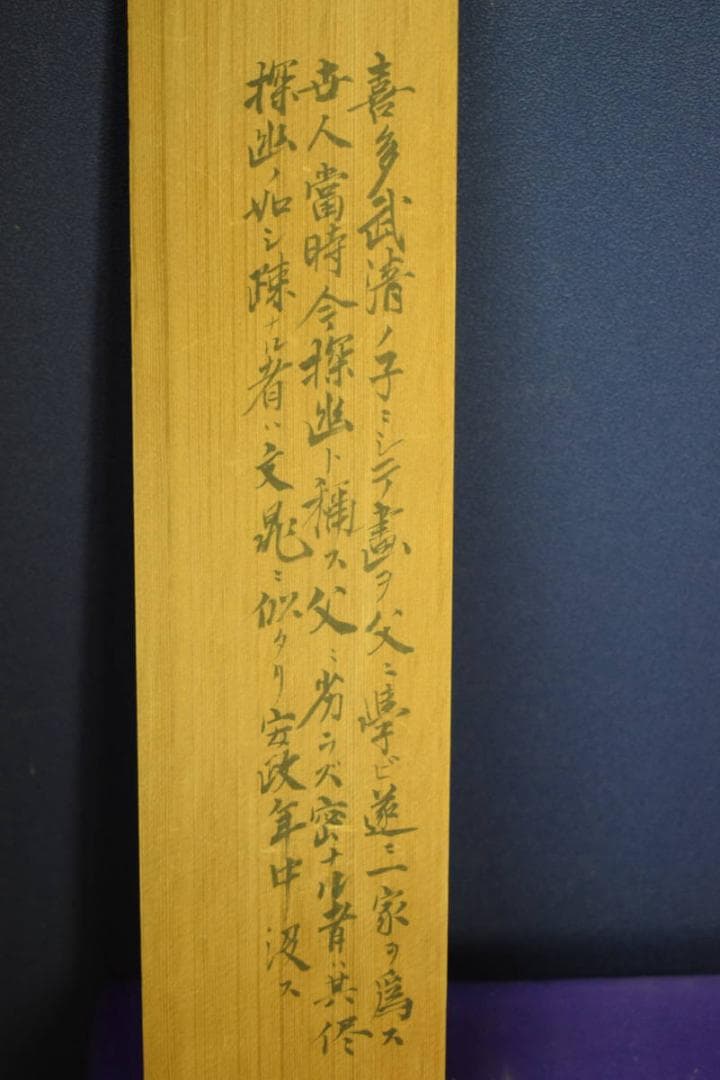 喜多武清ノ子ニシテ畫ヲ父ニ學ビ遂ニ一家ヲ爲ス
世人當時今探幽ト稱ス父ニ劣ラズ密ナル者ハ其侭
探幽ノ如シ疎ナル者ハ文晁ニ似タリ安政年中没ス